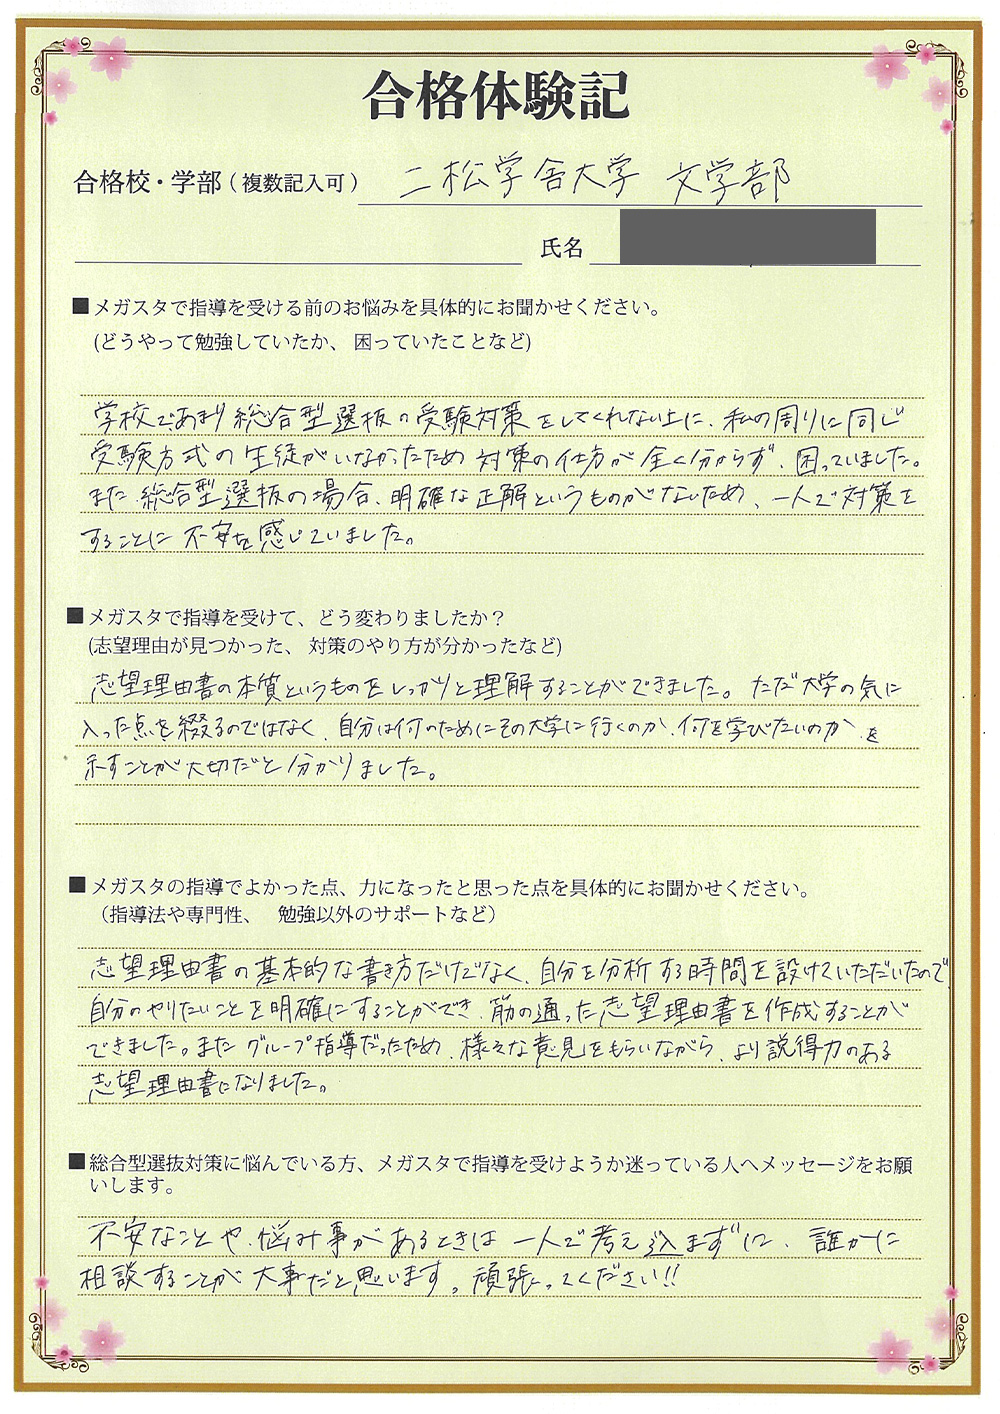 合格体験記
合格校・学部（複数記入可） 二松学舎大学 文学部
氏名
■メガスタで指導を受ける前のお悩みを具体的にお聞かせください。
(どうやって勉強していたか、困っていたことなど)
学校であまり総合型選抜の受験対策をしてくれない上に、私の周りに同じ
受験方式の生徒がいなかったため対策の仕方が全く分からず、困っていました。
また、総合型選抜の場合、明確な正解というものがないため、一人で対策を
することに不安を感じていました。
■メガスタで指導を受けて、どう変わりましたか？
(志望理由が見つかった、対策のやり方が分かったなど)
志望理由書の本質というものをしっかりと理解することができました。ただ大学の気に
入った点を綴るのではなく、自分は何のためにその大学に行くのか、何を学びたいのか、を
示すことが大切だと分かりました。
■メガスタの指導でよかった点、力になったと思った点を具体的にお聞かせください。
（指導法や専門性、 勉強以外のサポートなど）
志望理由書の基本的な書き方だけでなく、自分を分析する時間を設けていただいたので
自分のやりたいことを明確にすることができ、筋の通った志望理由書を作成することが
できました。また グループ指導だったため、様々な意見をもらいながら、より説得力のある
志望理由書になりました。
■総合型選抜対策に悩んでいる方、メガスタで指導を受けようか迷っている人へメッセージをお願
いします。
不安なことや、悩み事があるときは 一人で考え込まずに、誰かに
相談することが大事だと思います。頑張ってください!!